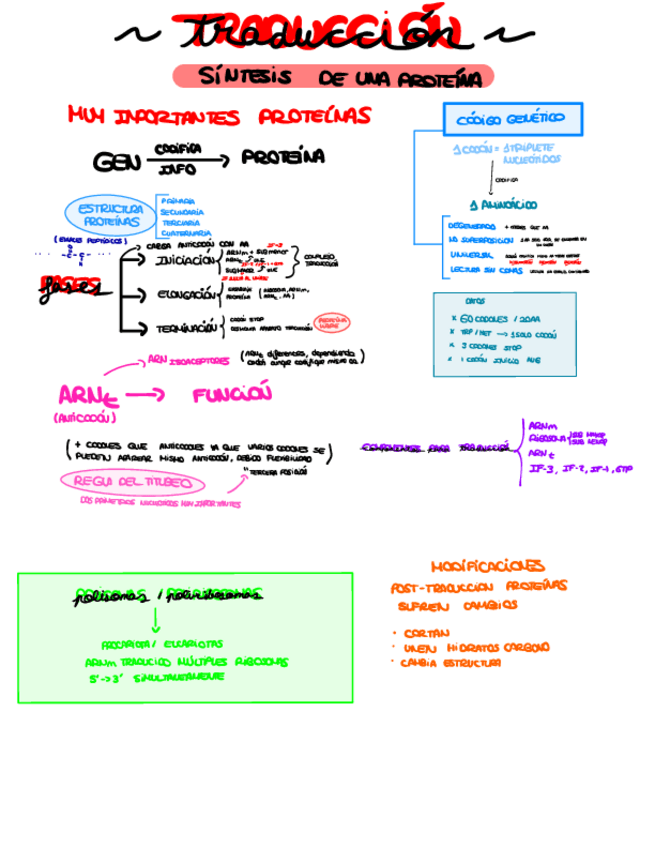 ~ traducción ~
SÍNTESIS DE UNA PROTEÍNA
MUY IMPORTANTES PROTEÍNAS
GEN CODIFICA INFO → PROTEÍNA
ESTRUCTURA PROTEÍNAS
PRIMARIA
SECUNDARIA
TERCIARIA
CUATERNARIA
(ENLACES PEPTÍDICOS)
fases
CARGA ANTICODÓN CON AA
INICIACIÓN
COMPLEJO TRADUCCIÓN
ELONGACIÓN
TERMINACIÓN
CODÓN STOP
PROTEÍNA LIBRE
CÓDIGO GENÉTICO
1 CODÓN = 1 TRIPLETE
NUCLEÓTIDOS
CODIFICA
1 AMINOÁCIDO
DEGENERADO
NO SUPERPOSICIÓN
UNIVERSAL
LECTURA SIN COMAS
DATOS
x 60 CODONES / 20AA
x TRP/MET → 1 SOLO CODÓN
x 3 CODONES STOP
x 1 CODÓN INICIO AUG
ARN ISOACEPTORES
ARNt → FUNCIÓN
(ANTICODÓN)
(+ CODONES QUE ANTICODONES YA QUE VARIOS CODONES SE
PUEDEN APAREAR MISMO ANTICODÓN, DEBIDO FLEXIBILIDAD)
"TERCERA POSICIÓN
REGLA DEL TITUBEO
DOS PRIMEROS NUCLEÓTIDOS MUY IMPORTANTES
COMPONENTES PARA TRADUCCIÓN
ARNm
RIBOSOMA
SUB MAYOR
SUB MENOR
ARNt
IF-3, IF-2, IF-1, GTP
polisomas / polirribosomas
PROCARIOTA / EUCARIOTAS
ARNm TRADUCIDO MÚLTIPLES RIBOSOMAS
5'->3' SIMULTANEAMENTE
MODIFICACIONES
POST-TRADUCCION PROTEÍNAS
SUFREN CAMBIOS
· CORTAN
· UNEN HIDRATOS CARBONO
· CAMBIA ESTRUCTURA